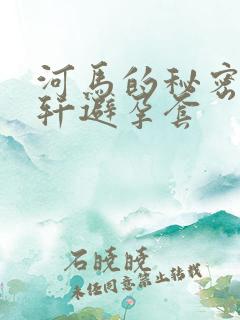 河马的秘密
轩避孕套
石晓晓
未经同意禁止转载